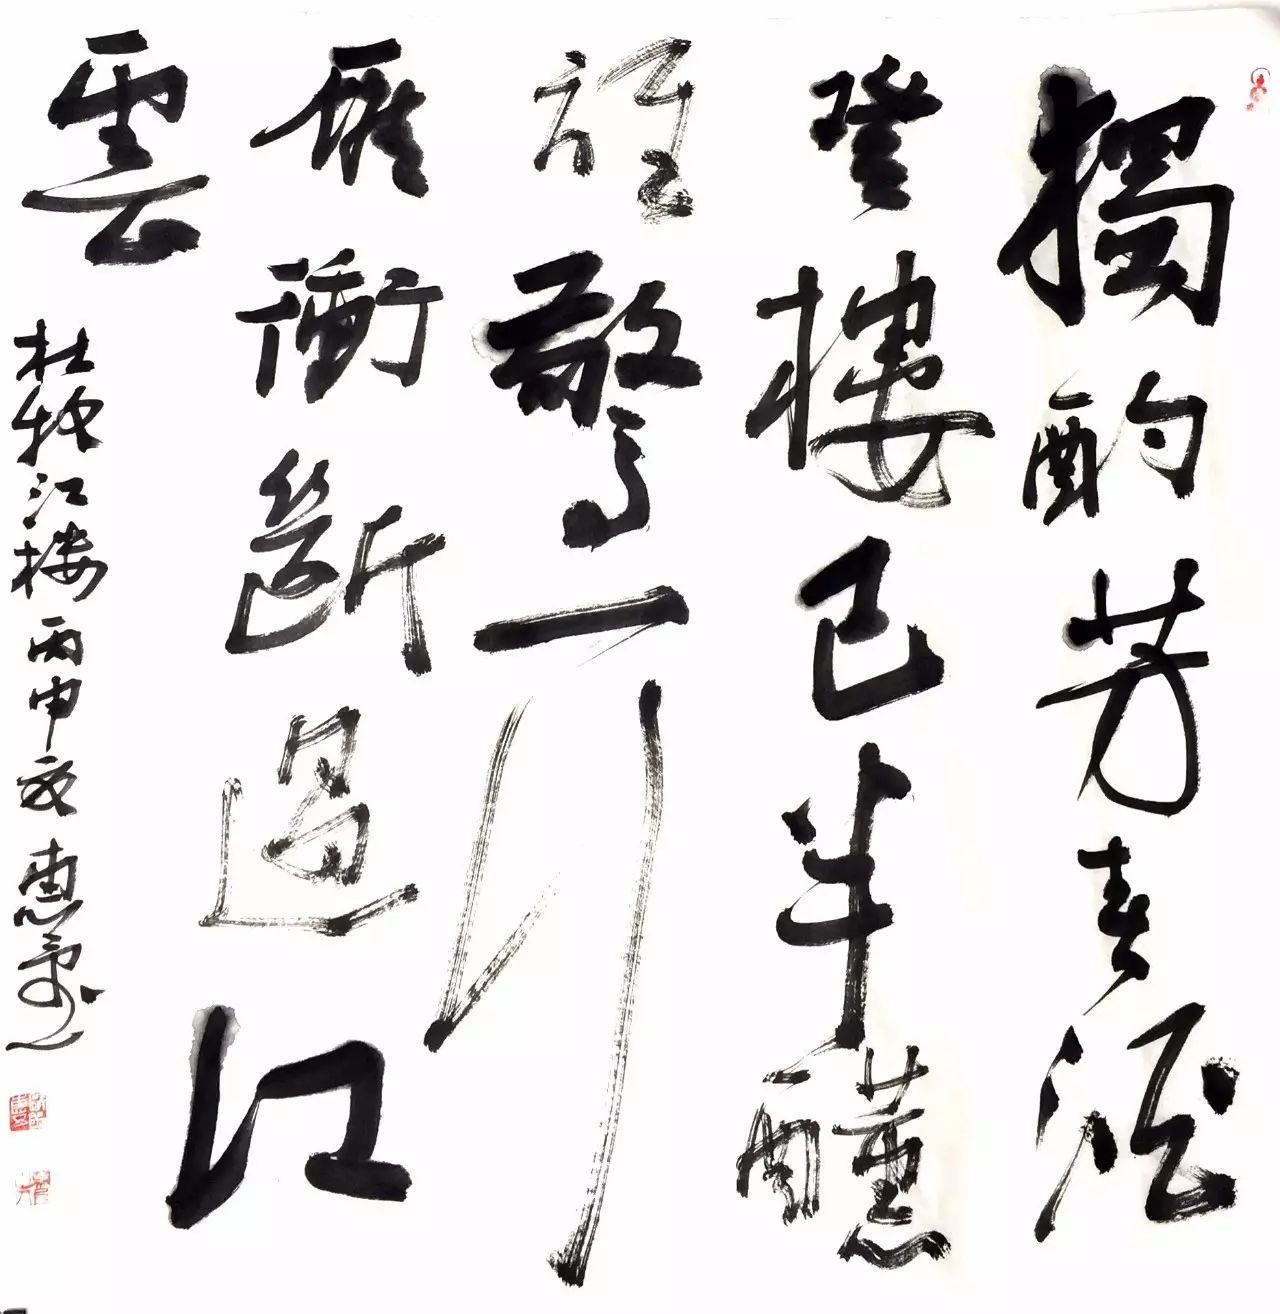 獨酌芳春酒
登樓已半醺
誰驚一行
雁衝斷過江
雲
杜牧江楼丙申惠